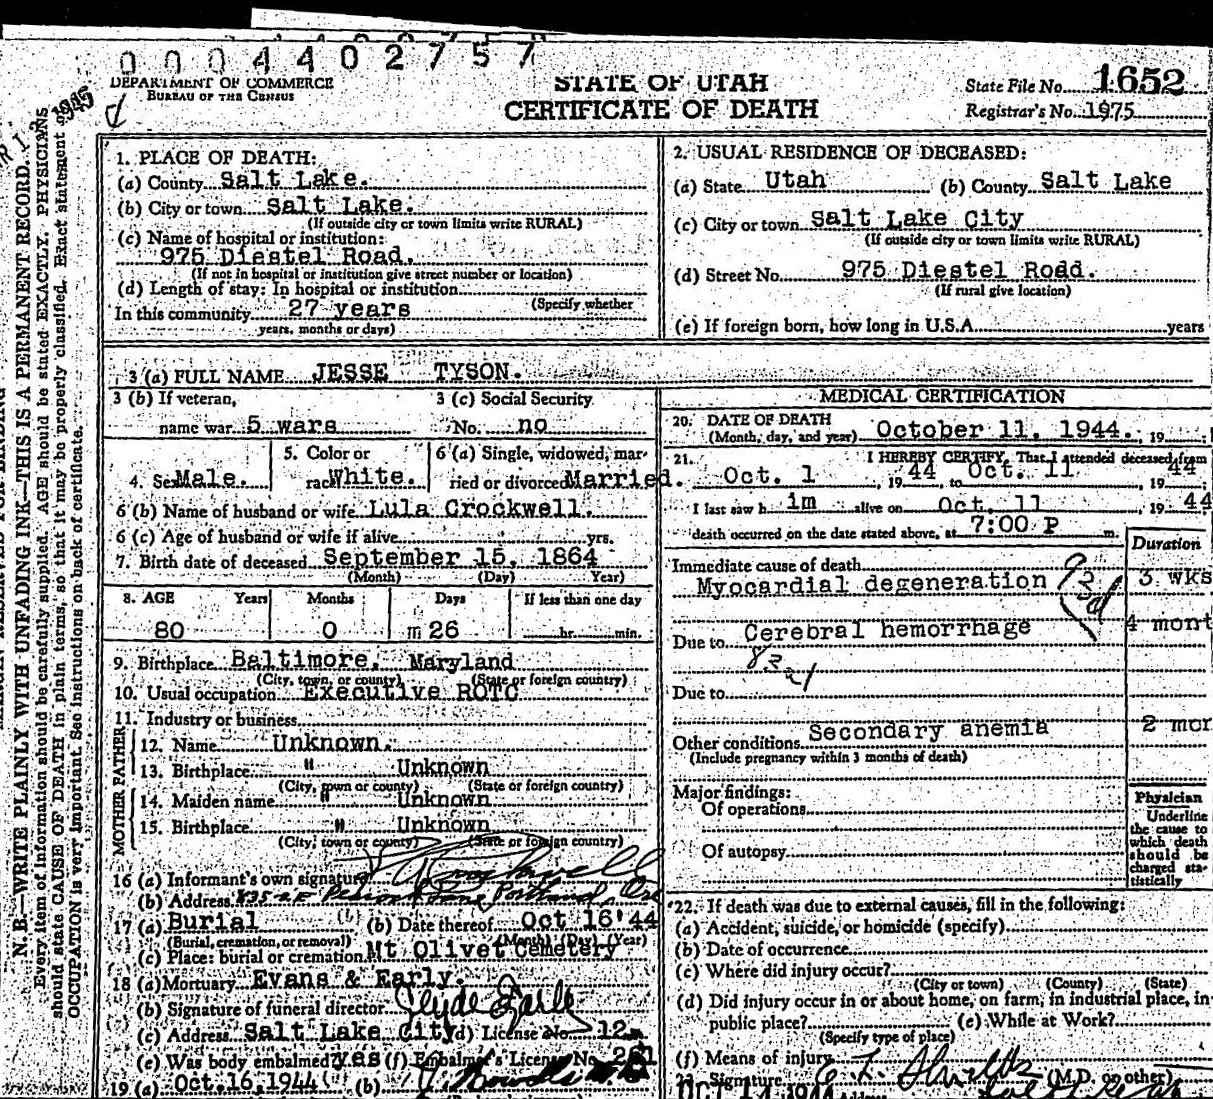 0004402757
DEPARTMENT OF COMMERCE
BUREAU OF THE CENSUS
STATE OF UTAH
CERTIFICATE OF DEATH
State File No. 1652
Registrar's No. 1975
N. B.—WRITE PLAINLY WITH UNFADING INK—THIS IS A PERMANENT RECORD.
Every item of information should be carefully supplied. AGE should be stated EXACTLY. PHYSICIANS
should state CAUSE OF DEATH in plain terms, so that it may be properly classified. Exact statement of
OCCUPATION is very important. See instructions on back of certificate.
1. PLACE OF DEATH:
(a) County Salt Lake.
(b) City or town Salt Lake.
(If outside city or town limits write RURAL)
(c) Name of hospital or institution:
975 Diestel Road.
(If not in hospital or institution give street number or location)
(d) Length of stay: In hospital or institution
(Specify whether
In this community 27 years
years, months or days)
2. USUAL RESIDENCE OF DECEASED:
(a) State Utah (b) County Salt Lake
(c) City or town Salt Lake City
(If outside city or town limits write RURAL)
(d) Street No. 975 Diestel Road.
(If rural give location)
(e) If foreign born, how long in U.S.A. years
3 (a) FULL NAME JESSE TYSON.
3 (b) If veteran, 3 (c) Social Security
name war 5 wars No. no
5. Color or 6 (a) Single, widowed, mar-
4. Sex Male. race White. ried or divorced Married.
6 (b) Name of husband or wife Lula Crockwell.
6 (c) Age of husband or wife if alive yrs.
7. Birth date of deceased September 15, 1864
(Month) (Day) Year)
8. AGE Years Months Days If less than one day
80 0 m 26 hr. min.
9. Birthplace Baltimore, Maryland
(City, town, or county) (State or foreign country)
10. Usual occupation Executive ROTC
11. Industry or business
FATHER
12. Name Unknown.
13. Birthplace " Unknown
(City, town or county) (State or foreign country)
MOTHER
14. Maiden name " Unknown
15. Birthplace " Unknown
(City, town or county) (State or foreign country)
16 (a) Informant's own signature
(b) Address Portland, Ore
17 (a) Burial (b) Date thereof Oct 16'44
(Burial, cremation, or removal) (Month) (Day) (Year)
(c) Place: burial or cremation Mt Olivet Cemetery
18 (a) Mortuary Evans & Early.
(b) Signature of funeral director Clyde Earle
(c) Address Salt Lake City (d) License No. 12
(e) Was body embalmed? yes (f) Embalmer's License No.
19 (a) Oct.16,1944 (b)
MEDICAL CERTIFICATION
20. DATE OF DEATH
(Month, day, and year) October 11, 1944. , 19
21. I HEREBY CERTIFY, That I attended deceased from
Oct. 1 , 19 44 to Oct. 11 , 19 44
I last saw h im alive on Oct. 11 , 19 44
death occurred on the date stated above, at 7:00 P m.
Duration
Immediate cause of death
Myocardial degeneration 93d 3 wks
Due to Cerebral hemorrhage 4 mont
Due to
Other conditions Secondary anemia 2 mon
(Include pregnancy within 3 months of death)
Major findings:
Of operations
Of autopsy
Physician
Underline
the cause to
which death
should be
charged sta-
tistically
22. If death was due to external causes, fill in the following:
(a) Accident, suicide, or homicide (specify)
(b) Date of occurrence
(c) Where did injury occur?
(City or town) (County) (State)
(d) Did injury occur in or about home, on farm, in industrial place, in
public place? (e) While at Work?
(Specify type of place)
(f) Means of injury
Signature (M.D. or other)
OCT 14 1944 Address